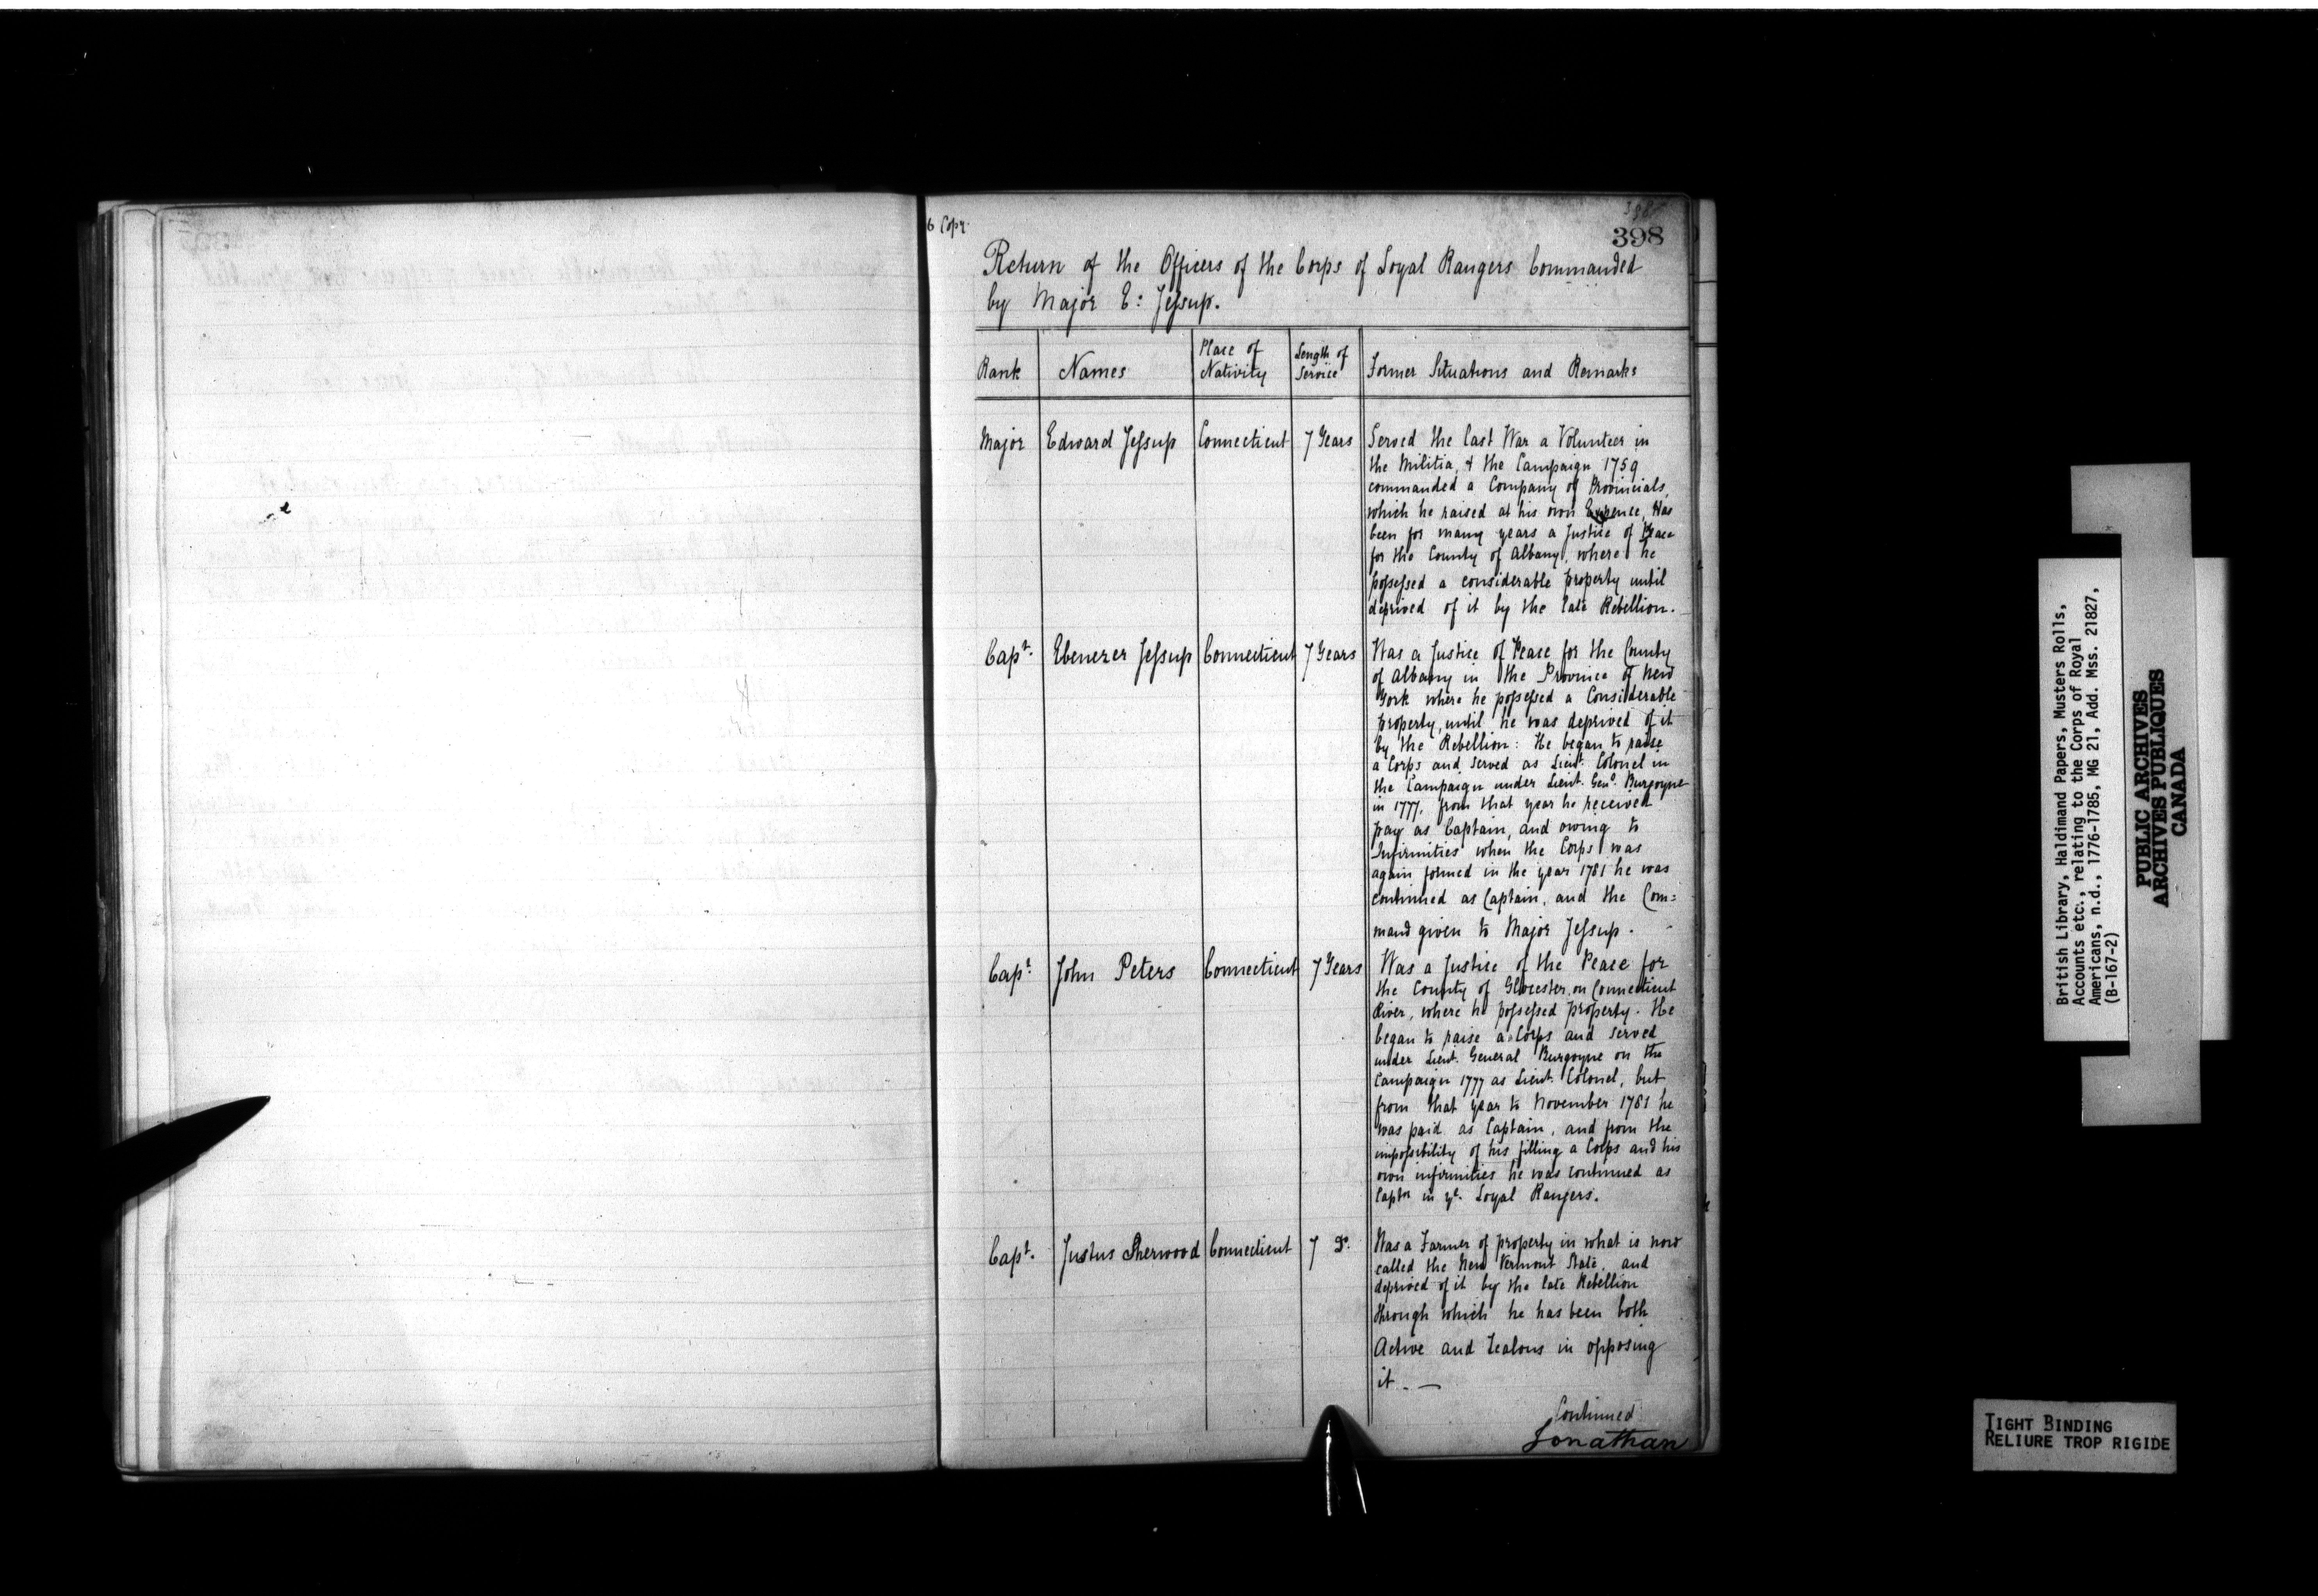 398
Return of the Officers of the Corps of Loyal Rangers Commanded
by Major E: Jessup.
Rank
Names
Place of
Nativity
Length of
Service
Former Situations and Remarks
Major
Edward Jessup
Connecticut
7 Years
Served the last War a Volunteer in
the Militia, & the Campaign 1759
commanded a Company of Provincials,
which he raised at his own Expence, Has
been for many years a Justice of Peace
for the County of Albany, where he
possessed a considerable property until
deprived of it by the late Rebellion.
Capt.
Ebenezer Jessup
Connecticut
7 Years
Was a Justice of Peace for the County
of Albany in the Province of New
York where he possessed a Considerable
property, until he was deprived of it
by the Rebellion: He began to raise
a Corps and served as Lieut. Colonel in
the Campaign under Lieut. Genl. Burgoyne
in 1777. from that year he received
pay as Captain, and owing to
Infirmities when the Corps was
again formed in the year 1781 he was
continued as Captain, and the Com=
mand given to Major Jessup.
Capt.
John Peters
Connecticut
7 Years
Was a Justice of the Peace for
the County of Glocester, on Connecticut
River, where he possessed property. He
began to raise a Corps and served
under Lieut. General Burgoyne on the
Campaign 1777 as Lieut. Colonel, but
from that year to November 1781 he
was paid as Captain, and from the
impossibility of his filling a Corps and his
own infirmities he was continued as
Captn in ye. Loyal Rangers.
Capt.
Justus Sherwood
Connecticut
7 Do.
Was a Farmer of property in what is now
called the New Vermont State, and
deprived of it by the late Rebellion
through which he has been both
Active and Zealous in opposing
it. —
Continued
Jonathan
British Library, Haldimand Papers, Musters Rolls,
Accounts etc., relating to the Corps of Royal
Americans, n.d., 1776-1785, MG 21, Add. Mss. 21827,
(B-167-2)
PUBLIC ARCHIVES
ARCHIVES PUBLIQUES
CANADA
TIGHT BINDING
RELIURE TROP RIGIDE